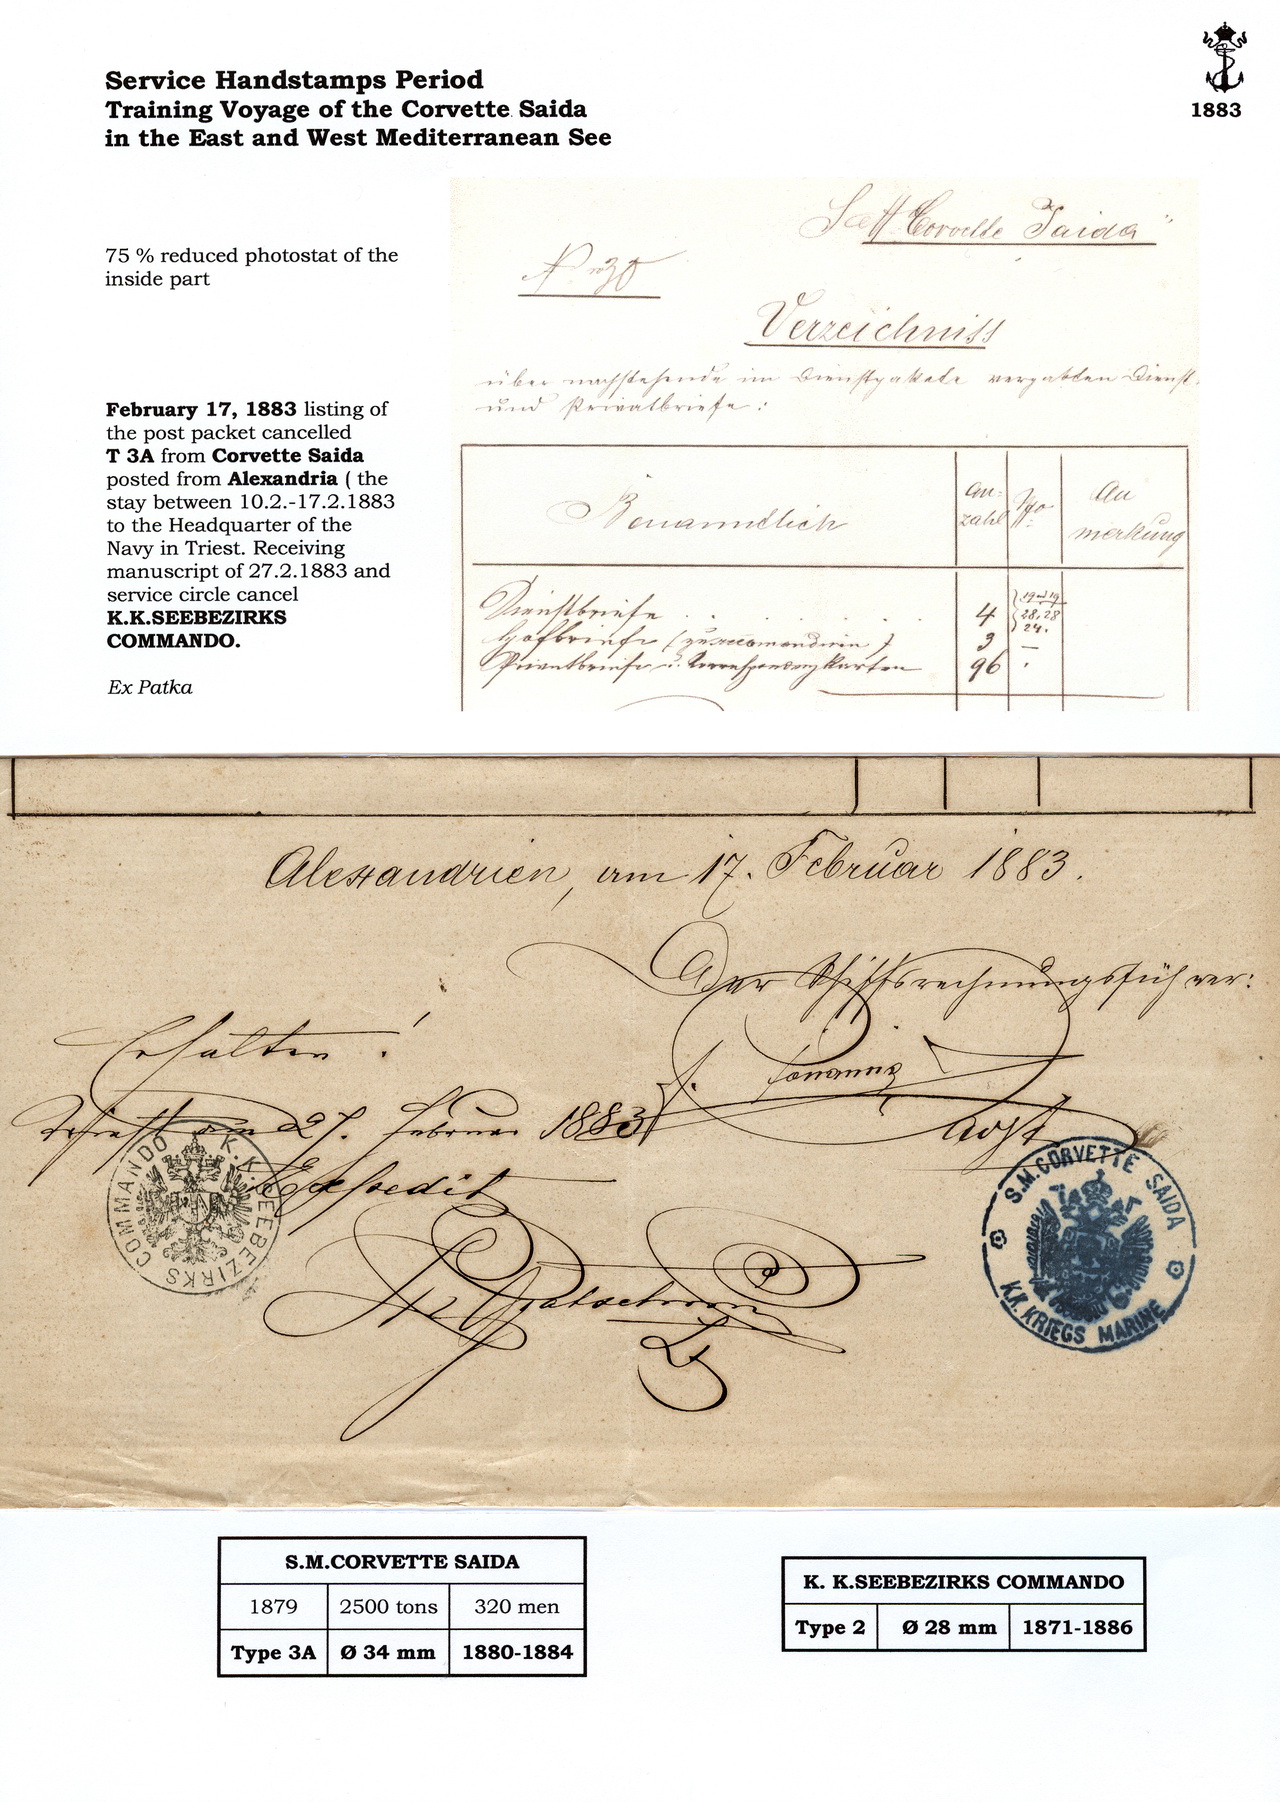 1883
Service Handstamps Period
Training Voyage of the Corvette Saida
in the East and West Mediterranean See
75 % reduced photostat of the
inside part
February 17, 1883 listing of
the post packet cancelled
T 3A from Corvette Saida
posted from Alexandria ( the
stay between 10.2.-17.2.1883
to the Headquarter of the
Navy in Triest. Receiving
manuscript of 27.2.1883 and
service circle cancel
K.K.SEEBEZIRKS
COMMANDO.
Ex Patka
Corvette Saida"
Verzeichniss
über nachstehende im Dienstpakete verpackten Dienst-
und Privatbriefe:
Benanntlich
An-
zahl
An
merkung
Dienstbriefe 4
28, 28
24.
Hofbriefe (zu recomandiren) 3 –
Privatbriefe u. Correspondenzkarten 96
Alexandrien, am 17. Februar 1883.
Der Schiffsrechnungsführer:
Erhalten!
Triest am 27. Februar 1883
Expedit
K.K. SEEBEZIRKS COMMANDO
S.M. CORVETTE SAIDA
K.K. KRIEGS MARINE
S.M.CORVETTE SAIDA
1879 2500 tons 320 men
Type 3A Ø 34 mm 1880-1884
K. K.SEEBEZIRKS COMMANDO
Type 2 Ø 28 mm 1871-1886